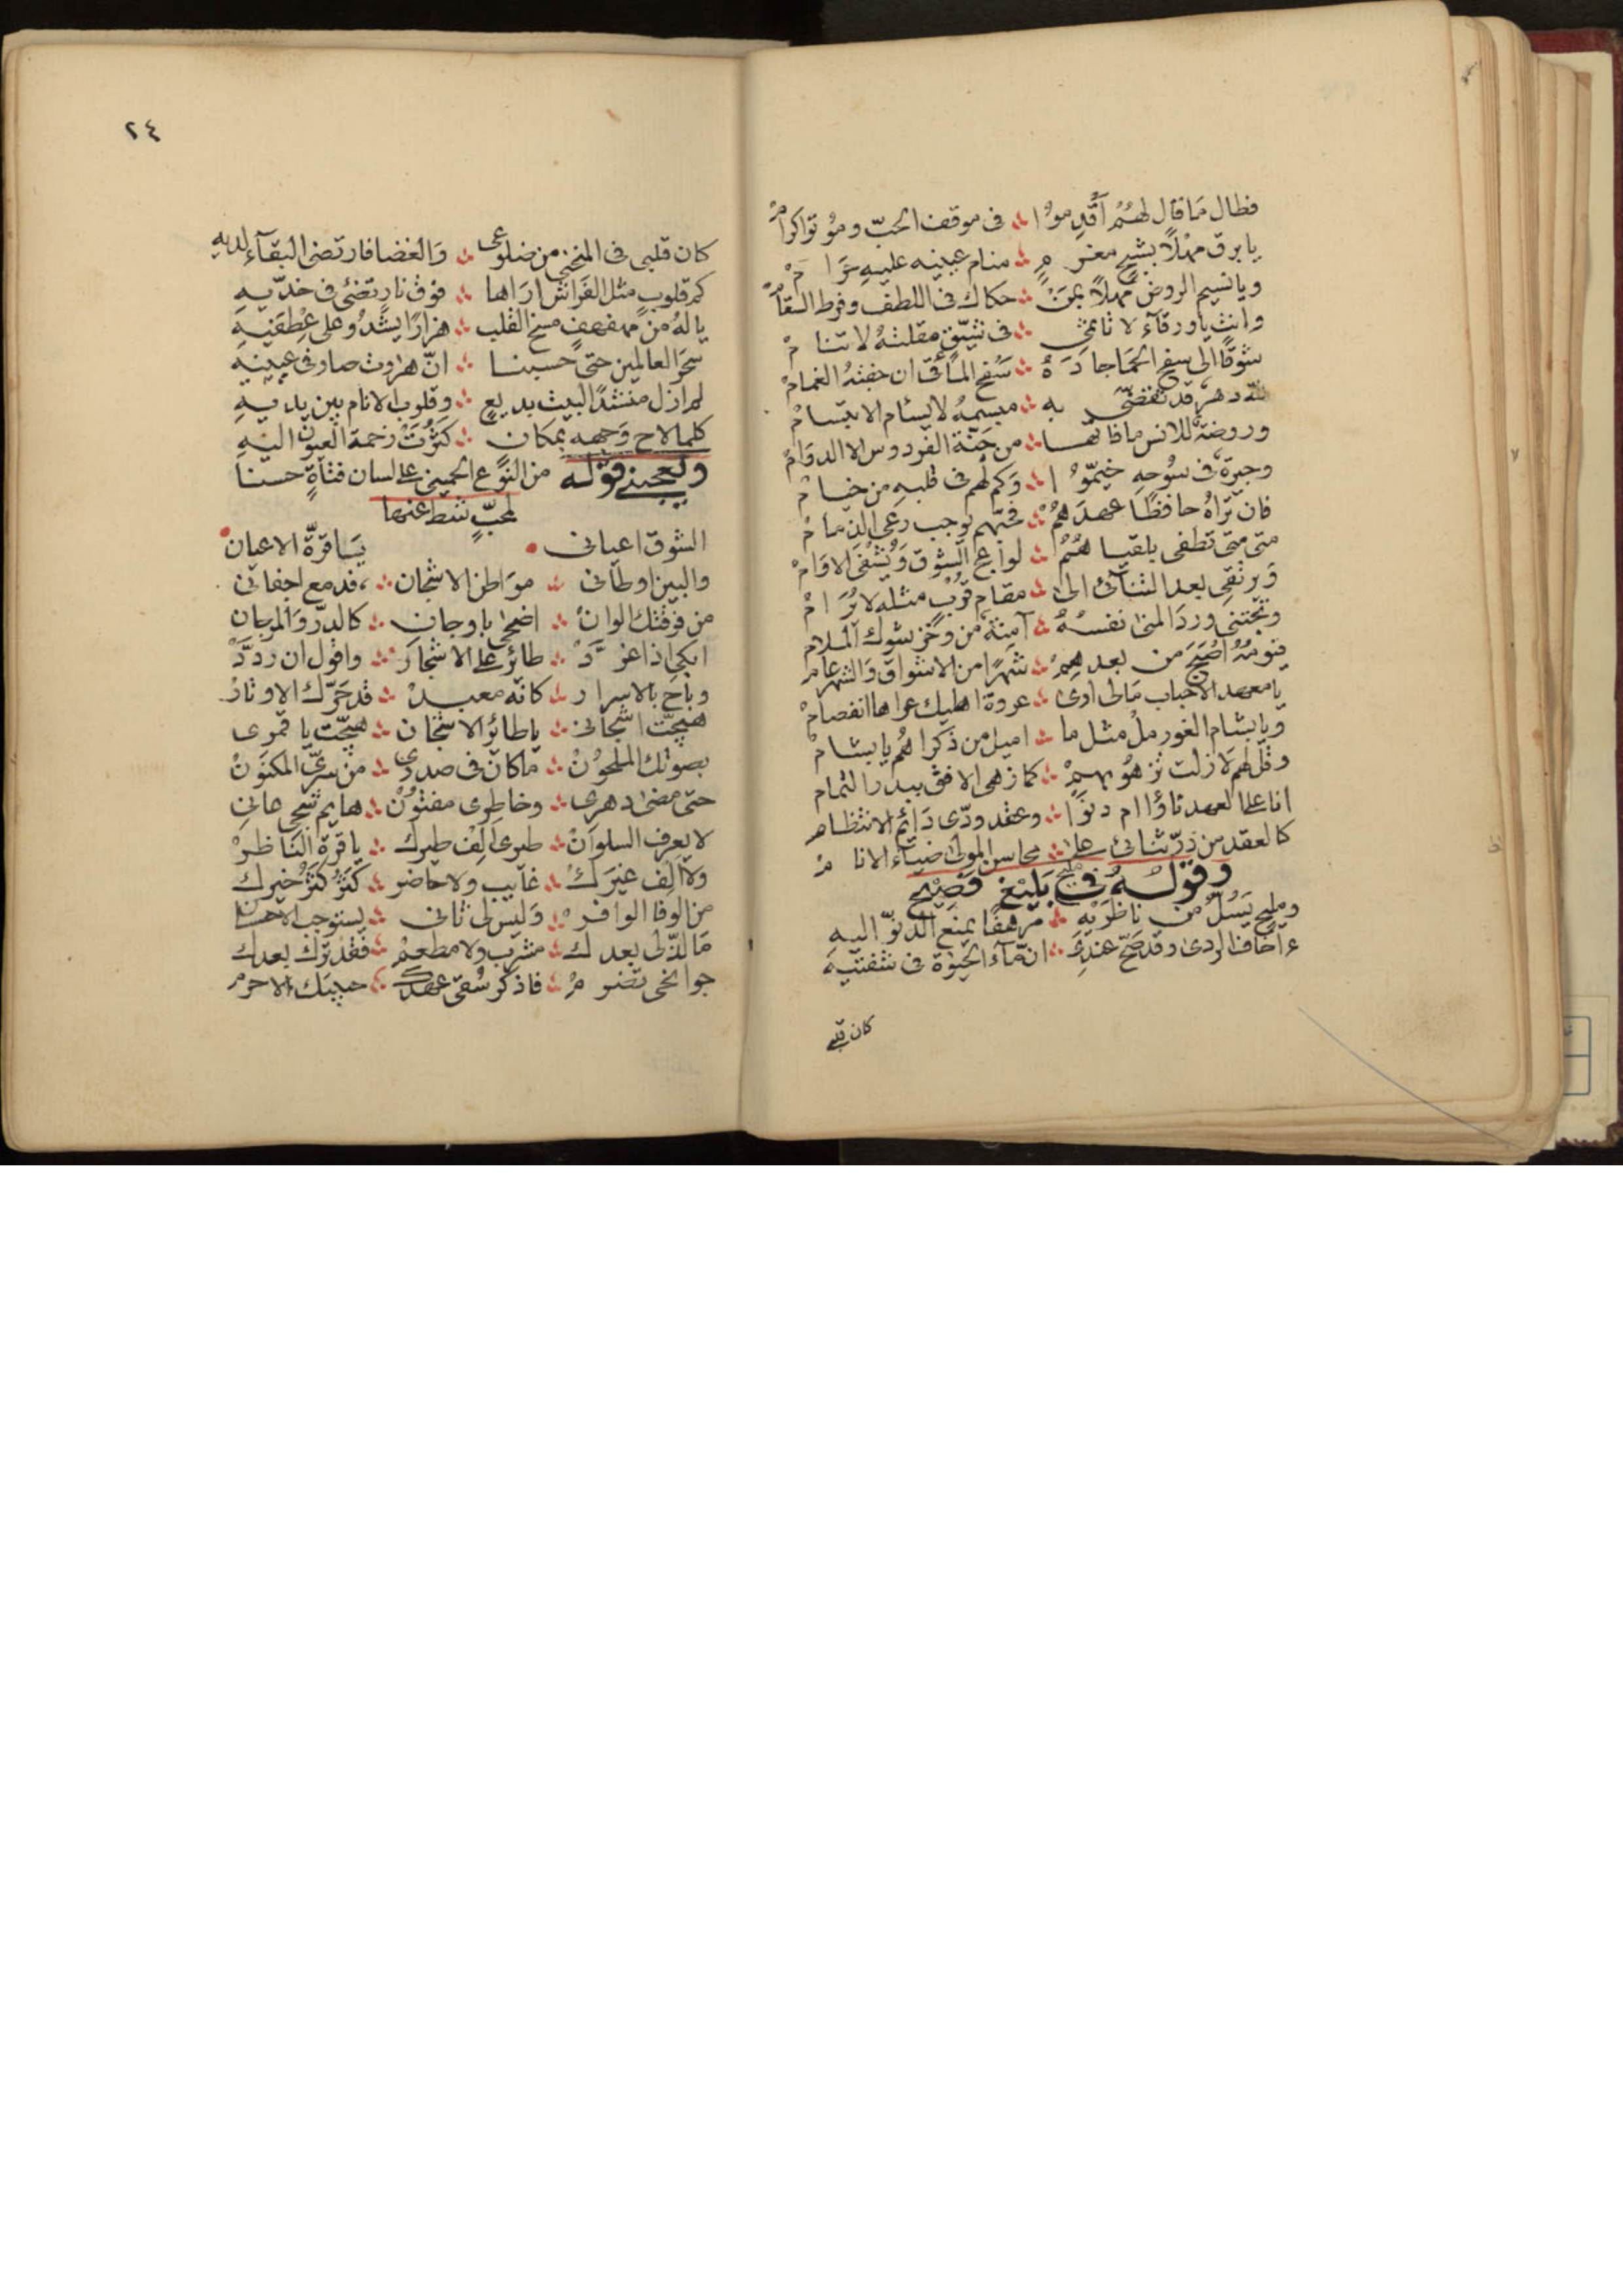 فطال مَا قال لهُمُ أقدموُا ∴ فى موقف الحبّ وموُتوا كرامْ
يا برق مهْلاً بشجٍ مغرمٍ ∴ منام عينيه عليهِ حَرامْ
ويا نسيم الروض مهلاً بمَنْ ∴ حكاك فى اللطف وفرط السقامْ
وانتِ يا ورقآء لا تأتمى ∴ فى شيّقٍ مقلتهُ لا تنامْ
شوقًا الى سفح الحمَا جادَهُ ∴ سَفح المآقى ان جفتهُ الغمامْ
لله دهر قد تقضّى به ∴ مبسمهُ لا يسئام الابتسامْ
وروضة للانس ما فاتها ∴ من جَنّة الفردوس الا الدوَامْ
وجيرة فى سُوحهِ خيّموُا ∴ وَكم لهم فى قلبهِ من خيامْ
فان تراهُ حافظًا عهدَهُمْ ∴ فحبّهم يوجب رعى الذمامْ
متى متى تطفى بلقياهُمُ ∴ لواعج الشوق وَيُشْفى الاوَامْ
وَيرتقى بعد التنآئى الى ∴ مقام قُرْبٍ مثله لا يُرَامْ
وتجتنى وردَ المنى نفسُهُ ∴ آمنة من وخز شوك الملام
فيومُهُ اصْبَحَ من بعدهِمْ ∴ شهرًا من الاشواق وَالشهر عامْ
يا معهد الاحباب مَا لى ارى ∴ عروة اهليك عراها انفصامْ
ويا بشام الغور ملْ مثل ما ∴ اميل من ذكراهُم يا بشامْ
وقل لهم لا زلت تزهُو بهمْ ∴ كما زهى الافق ببدر التمام
انا على العهد نأوا ام دنوَا ∴ وعقد ودّى دَائم الانتظام
كالعقد من دُرّ ثنائى على ∴ محاسن المولى ضيآء الانامْ
وقولهُ فى مليح بَليْغ فَصِيْح
ومليح يَسُلّ من ناظرَيْهِ ∴ مرهفًا يمنع الدنوّ اليهِ
ءاخاف الردى وقد صَحّ عندِى ∴ انّ مآء الحيوٰة فى شفتيْهِ
كان قلبى
٢٤
كان قلبى فى المنحنى من ضلوعى ∴ وَالغضا فارتضى البقآء لديهِ
كم قلوبٍ مثل الفَراش ارَاها ∴ فوق نارٍ تضئ فى خدّيهِ
يا لهُ من مهفهفٍ مسخ القلب ∴ هزارًا يشْدُو على عِطفيْهِ
سحَر العالمين حتى حَسبنا ∴ انّ هٰروت صار فى عينيْهِ
لم ازل منشدًا لبيت بديعٍ ∴ وقلوب الانام بين يديهِ
كلما لاح وَجهه بمكان ∴ كثُرَتْ زحمة العيون اليْهِ
ويعجبنى قوله من النوع الحمينى على لسان فتاةٍ حسنا
لمحبّ شط عنها
الشوق اعيانى ● يَا قرّة الاعيان ●
والبين اوطانى ∴ موَاطن الاشجان ∴ فدمع اجفانى
من فرقتك الوانْ ∴ اضحى باوجان ∴ كالدرّ وَالمرجان
ابكى اذا غرّدْ ∴ طائر على الاشجارْ ∴ واقول ان ردّدْ
وباح بالاسرار ∴ كانه معبدْ ∴ قد حَرّك الاوتارْ
هيّجت اشجانى ∴ يا طائر الاشجان ∴ هيّجت يا قمرى
بصوتك الملحُونْ ∴ ما كان فى صدرى ∴ من سرّى المكنونْ
حتى مضى دهرى ∴ وخاطرى مفتُونْ ∴ هايم شجى عانى
لا يعرف السلوَانْ ∴ طيرى اَلِفْ طيرك ∴ يا قرة النَاظرْ
ولا اَلِف غيرَكْ ∴ غآيب ولا حاضر ∴ كثّر كثّر خيرك
من الوفا الوافرْ ∴ وَليس لى ثانى ∴ يستوجب الاحسان
مَا لذّ لى بعدكْ ∴ مشرب ولا مطعمْ ∴ ففقد ترك بعدك
جوانحى تضرمْ ∴ فاذكر سُقى عهدك ∴ حبيبَك الاحرم